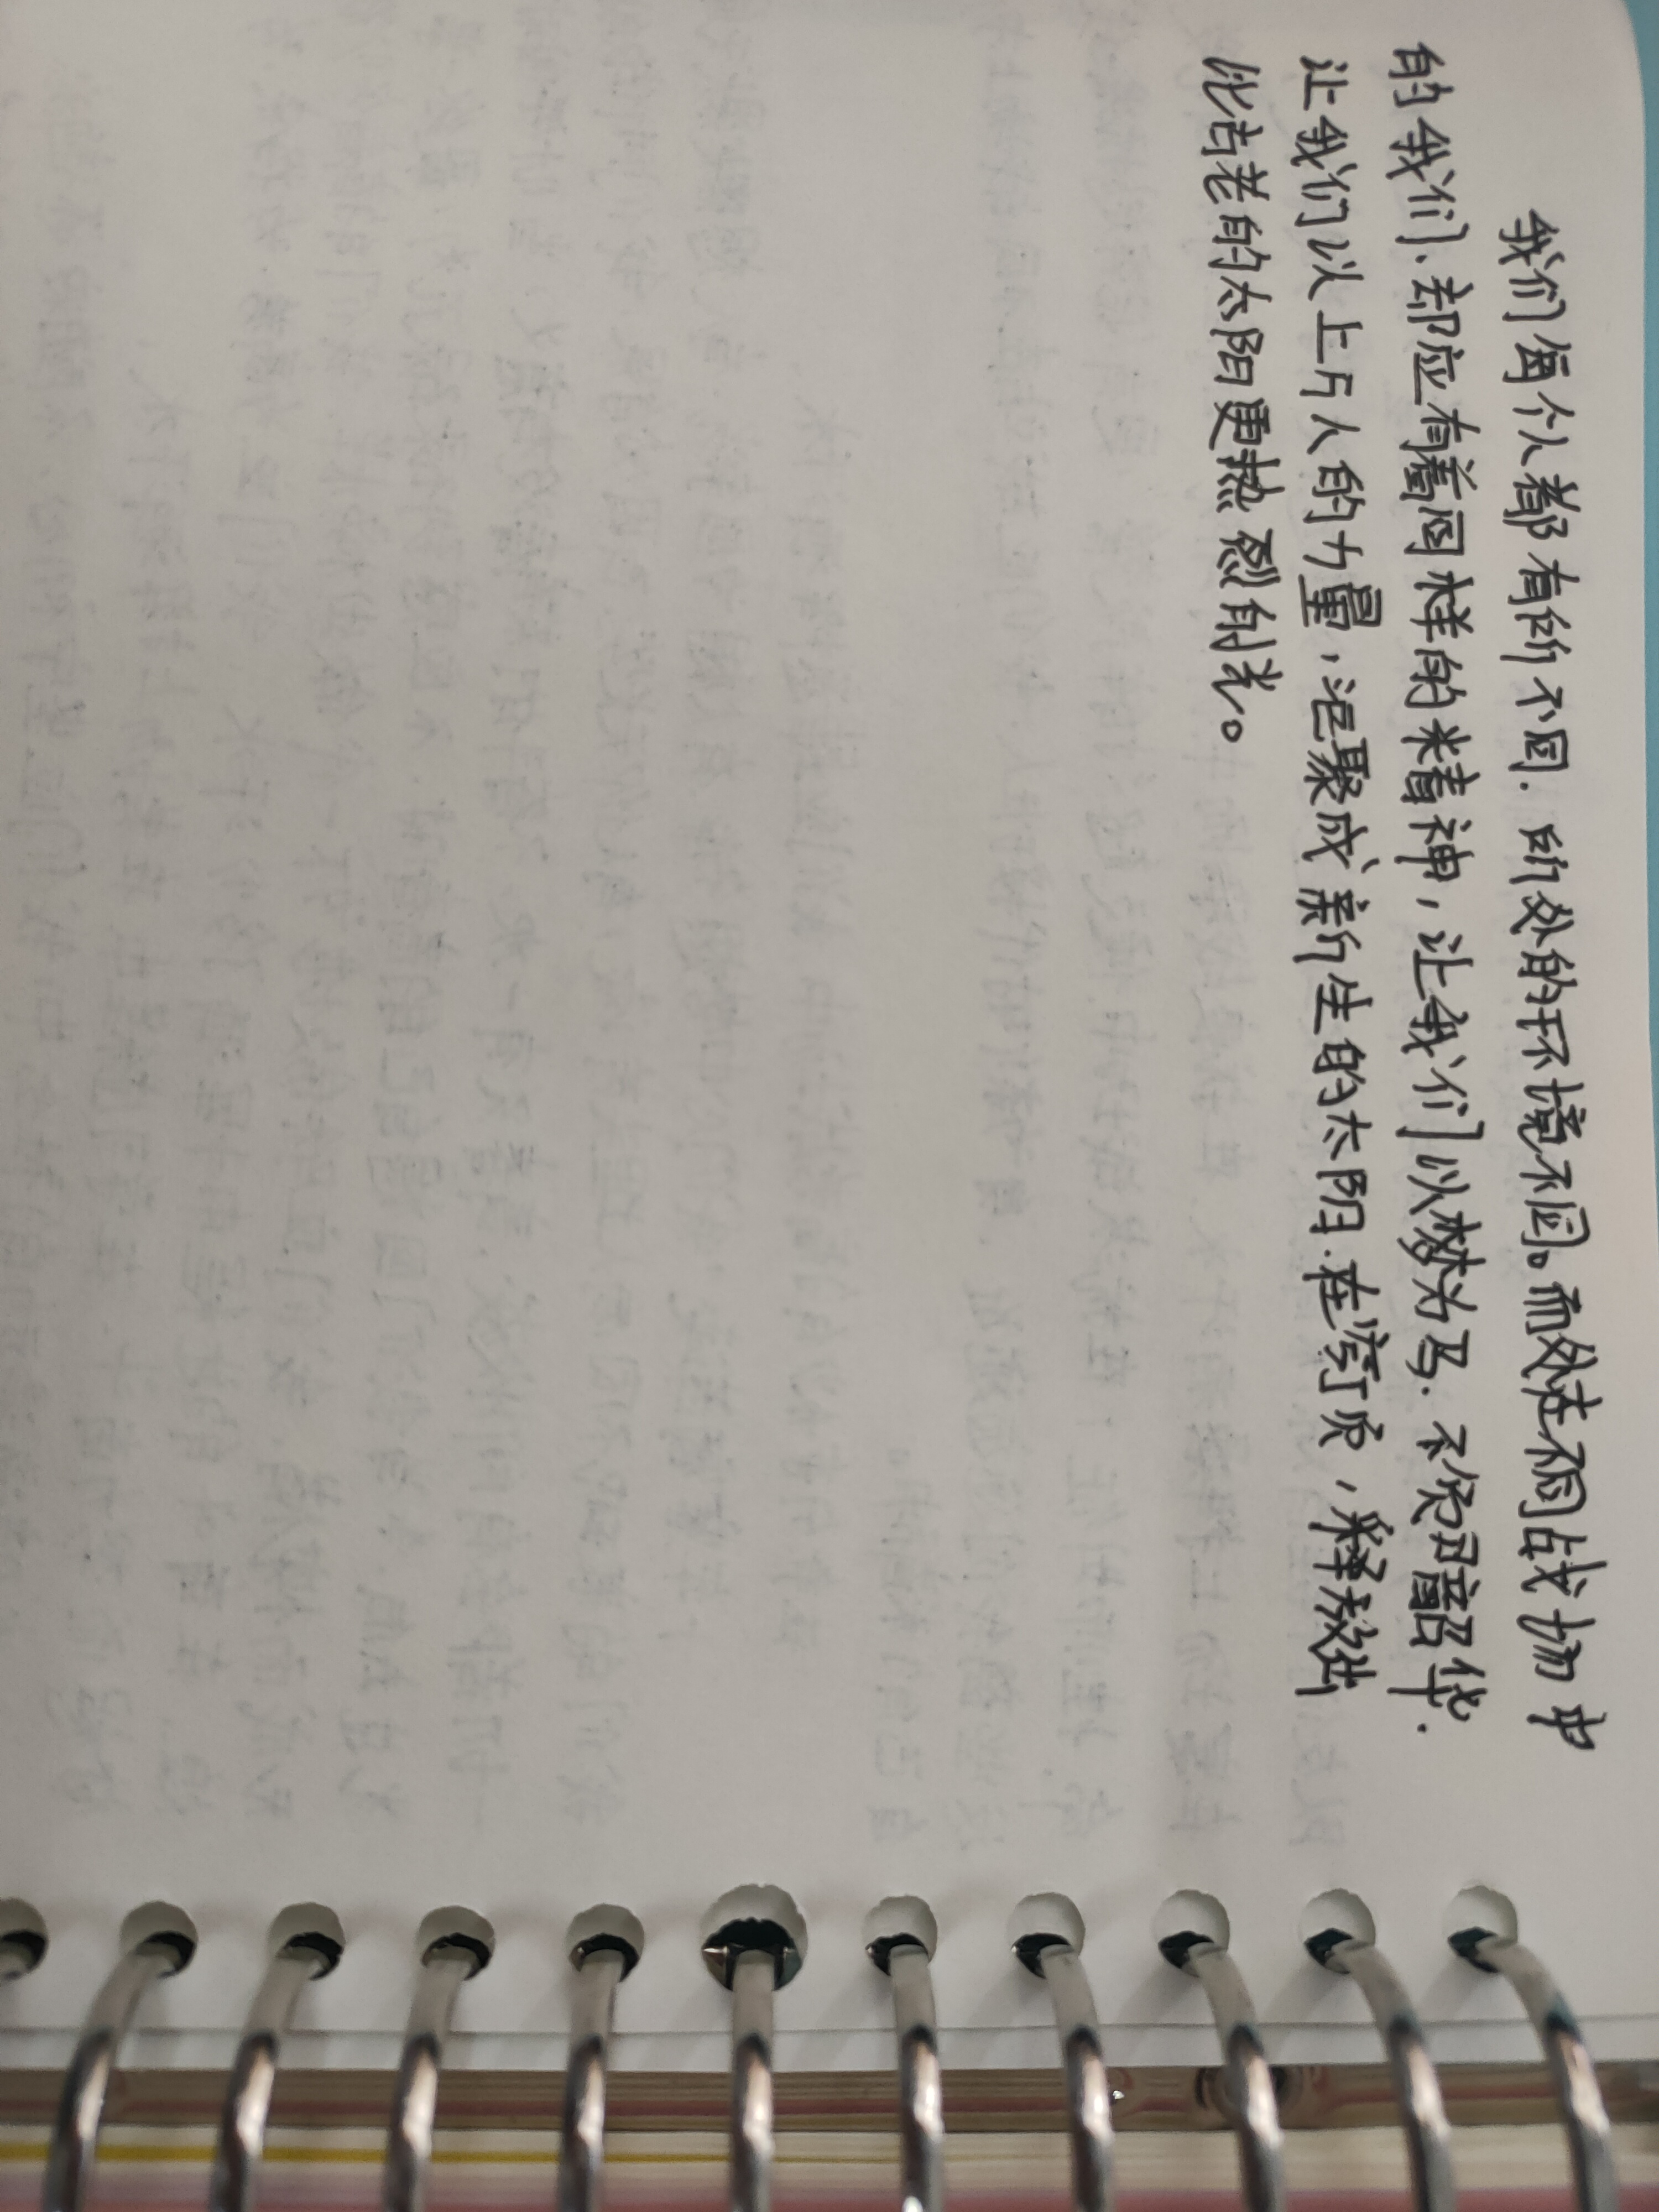 我们每个人都有所不同.所处的环境不同。而处在不同战场中
的我们、却应有着同样的精神，让我们以梦为马.不负韶华.
让我们以上万人的力量，汇聚成新生的太阳.在穹顶，释放出
比古老的太阳更热烈的光。